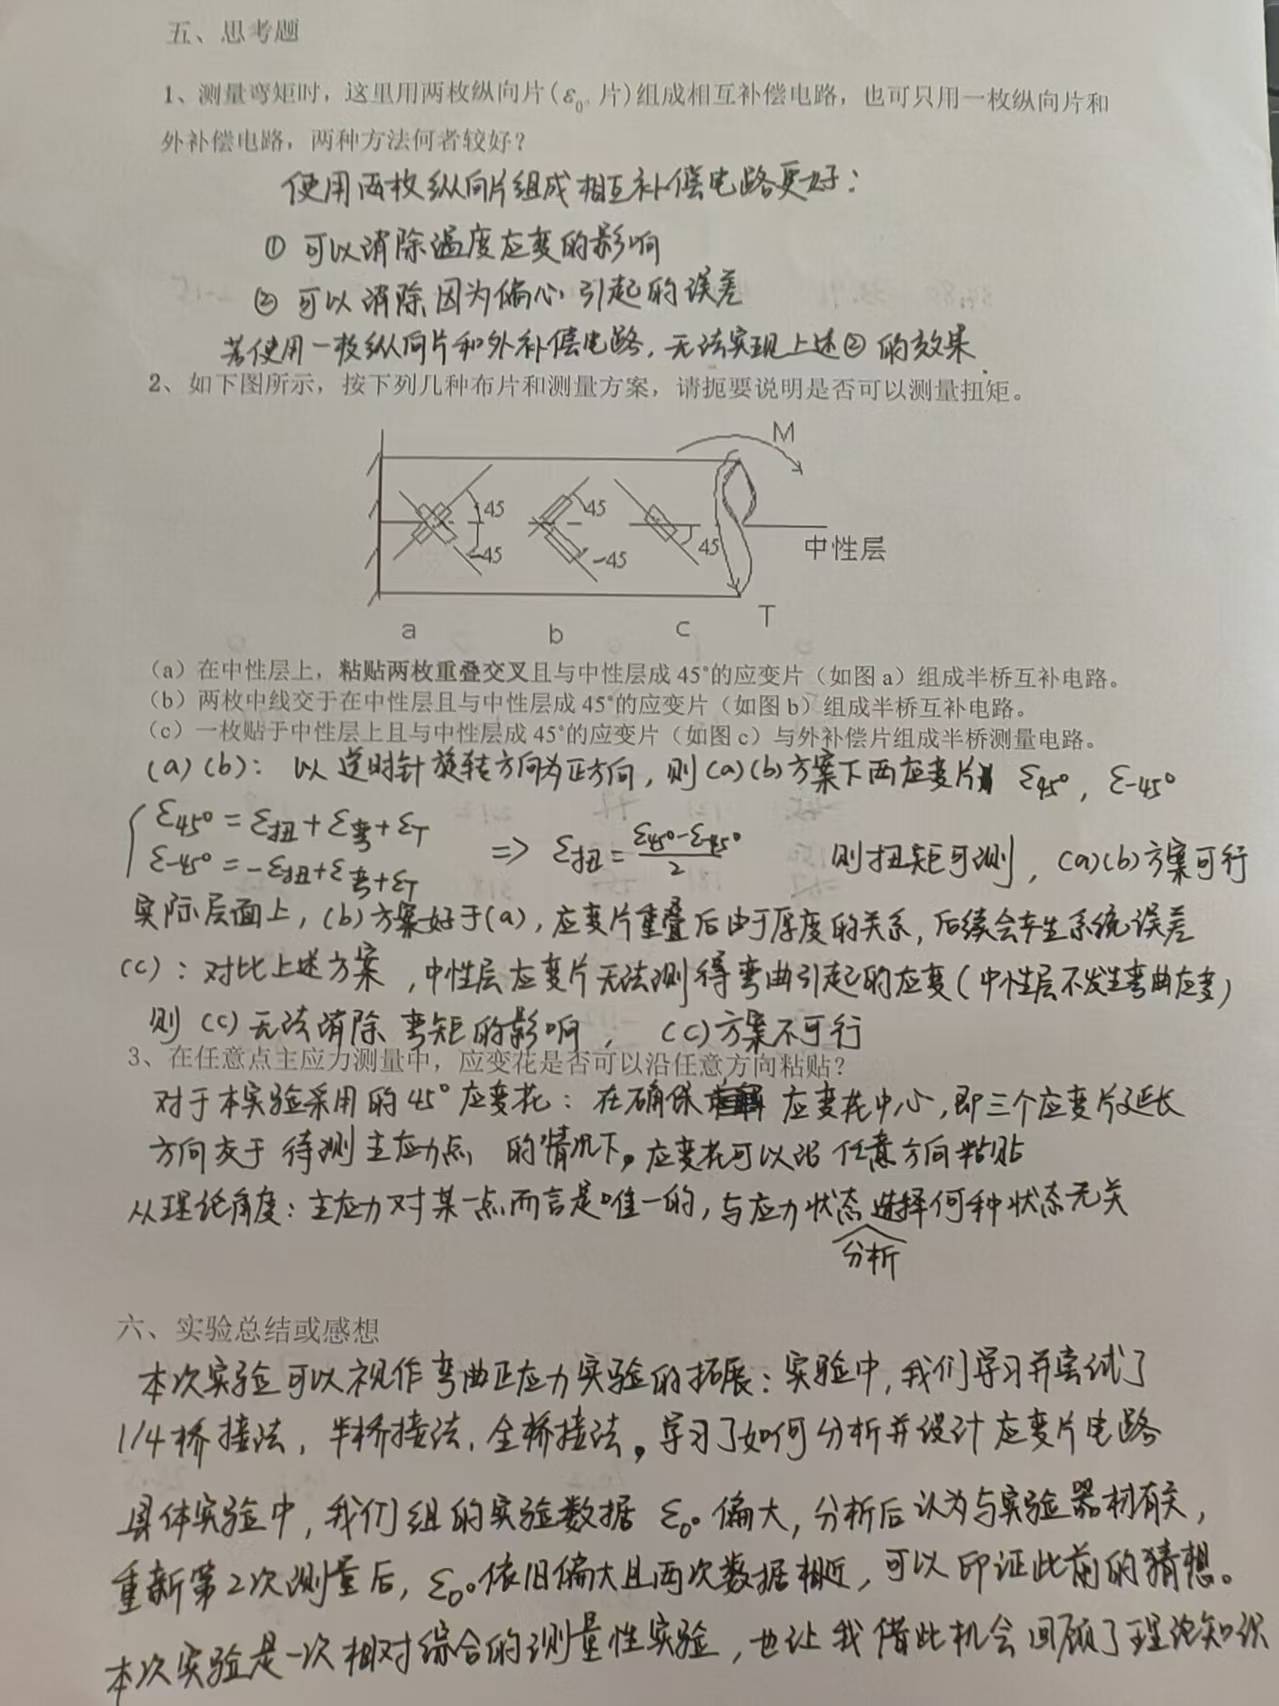 五、思考题
1、测量弯矩时，这里用两枚纵向片(ε0° 片)组成相互补偿电路，也可只用一枚纵向片和
外补偿电路，两种方法何者较好？
使用两枚纵向片组成相互补偿电路更好：
① 可以消除温度应变的影响
② 可以消除因为偏心引起的误差
若使用一枚纵向片和外补偿电路，无法实现上述②的效果.
2、如下图所示，按下列几种布片和测量方案，请扼要说明是否可以测量扭矩。
M
45 45
-45 -45 45
中性层
a b c T
（a）在中性层上，粘贴两枚重叠交叉且与中性层成 45°的应变片（如图 a）组成半桥互补电路。
（b）两枚中线交于在中性层且与中性层成 45°的应变片（如图 b）组成半桥互补电路。
（c）一枚贴于中性层上且与中性层成 45°的应变片（如图 c）与外补偿片组成半桥测量电路。
(a)(b)：以逆时针旋转方向为正方向，则(a)(b)方案下两应变片 ε45°，ε-45°
ε45° = ε扭+ε弯+εT
ε-45° = -ε扭+ε弯+εT
=> ε扭 = (ε45°-ε-45°)/2 则扭矩可测，(a)(b)方案可行
实际层面上，(b)方案好于(a)，应变片重叠后由于厚度的关系，后续会产生系统误差
(c)：对比上述方案，中性层应变片无法测得弯曲引起的应变(中性层不发生弯曲应变)
则(c)无法消除弯矩的影响，(c)方案不可行
3、在任意点主应力测量中，应变花是否可以沿任意方向粘贴？
对于本实验采用的45°应变花：在确保 应变花中心，即三个应变片延长
方向交于待测主应力点 的情况下，应变花可以沿任意方向粘贴
从理论角度：主应力对某一点而言是唯一的，与应力状态选择何种状态无关
分析
六、实验总结或感想
本次实验可以视作弯曲正应力实验的拓展：实验中，我们学习并尝试了
1/4桥接法，半桥接法，全桥接法。学习了如何分析并设计应变片电路
具体实验中，我们组的实验数据 ε0° 偏大，分析后认为与实验器材有关，
重新第2次测量后，ε0°依旧偏大且两次数据相近，可以印证此前的猜想。
本次实验是一次相对综合的测量性实验，也让我借此机会回顾了理论知识